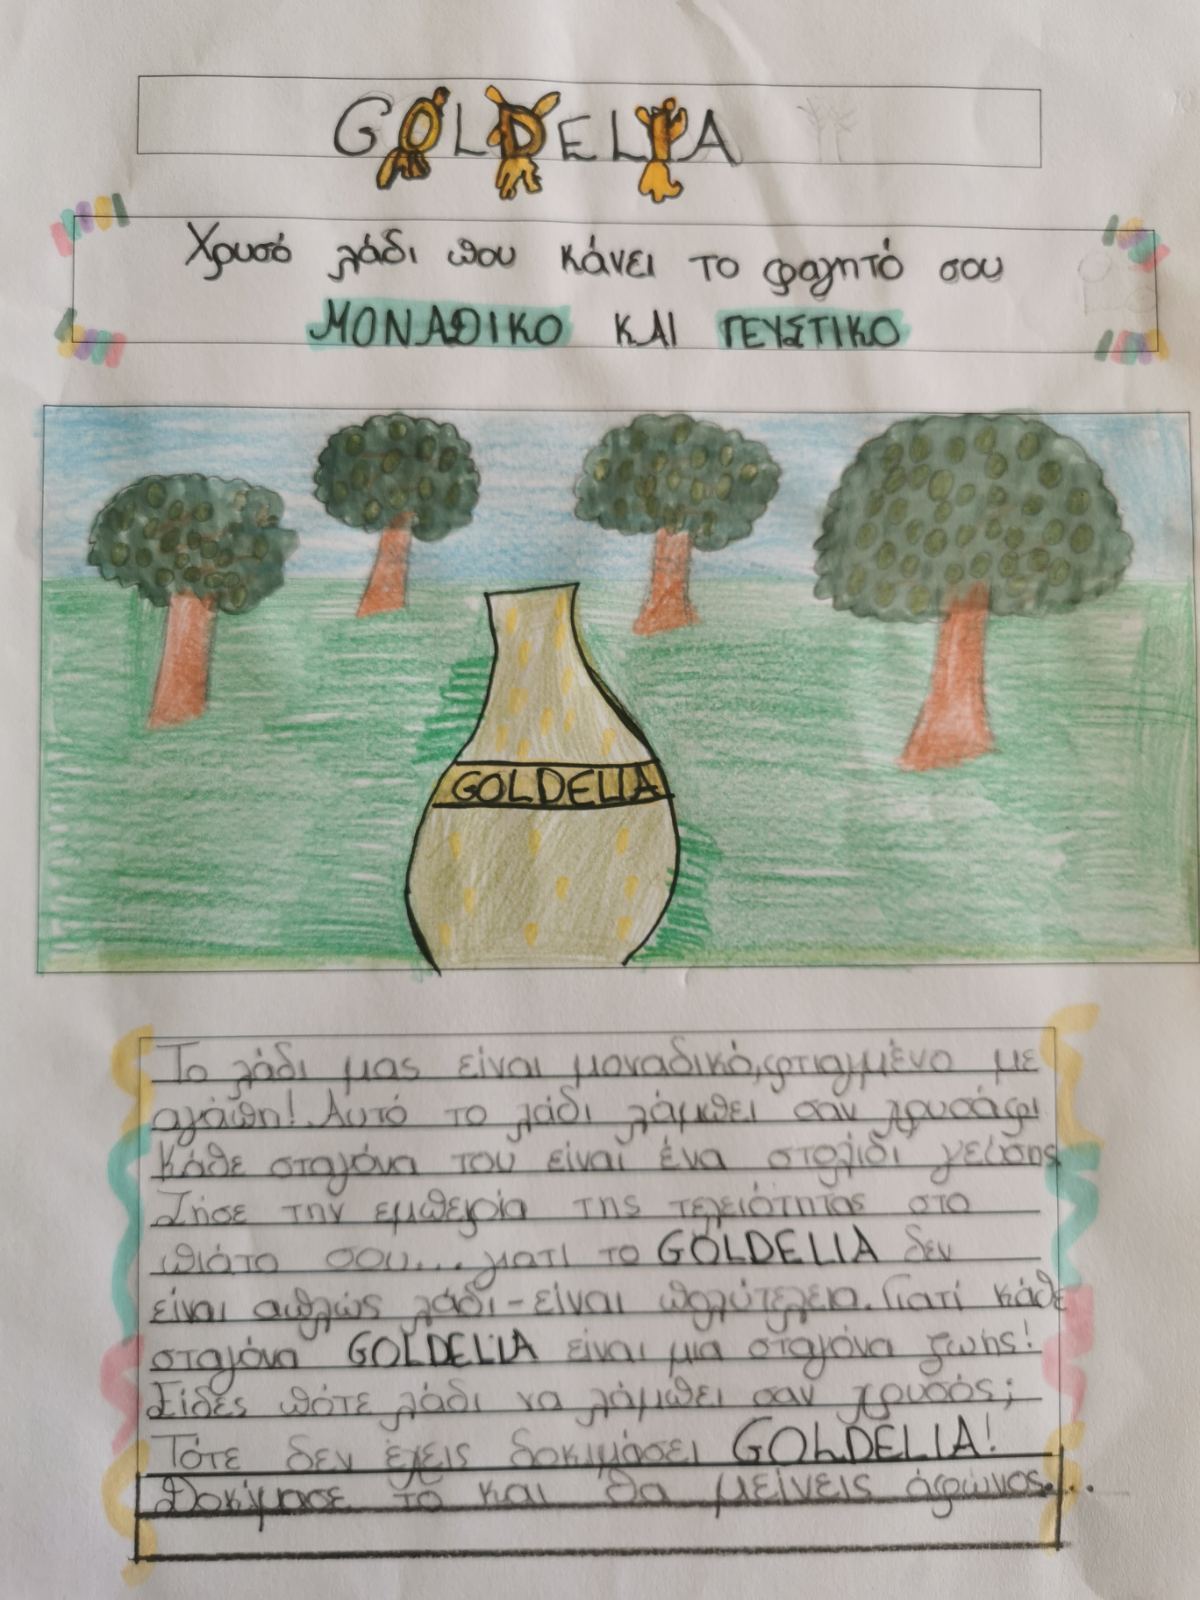 GOLDELIA
Χρυσό λάδι που κάνει το φαγητό σου
ΜΟΝΑΔΙΚΟ ΚΑΙ ΓΕΥΣΤΙΚΟ
GOLDELIA
Το λάδι μας είναι μοναδικό,φτιαγμένο με
αγάπη! Αυτό το λάδι λάμπει σαν χρυσάφι
Κάθε σταγόνα του είναι ένα στολίδι γεύσης
Ζήσε την εμπειρία της τελειότητας στο
πιάτο σου... γιατί το GOLDELIA δεν
είναι απλώς λάδι-είναι πολυτέλεια. Γιατί κάθε
σταγόνα GOLDELIA είναι μια σταγόνα ζωής!
Είδες πότε λάδι να λάμπει σαν χρυσός;
Τότε δεν έχεις δοκιμάσει GOLDELIA!
Δοκίμασε το και θα μείνεις άφωνος...